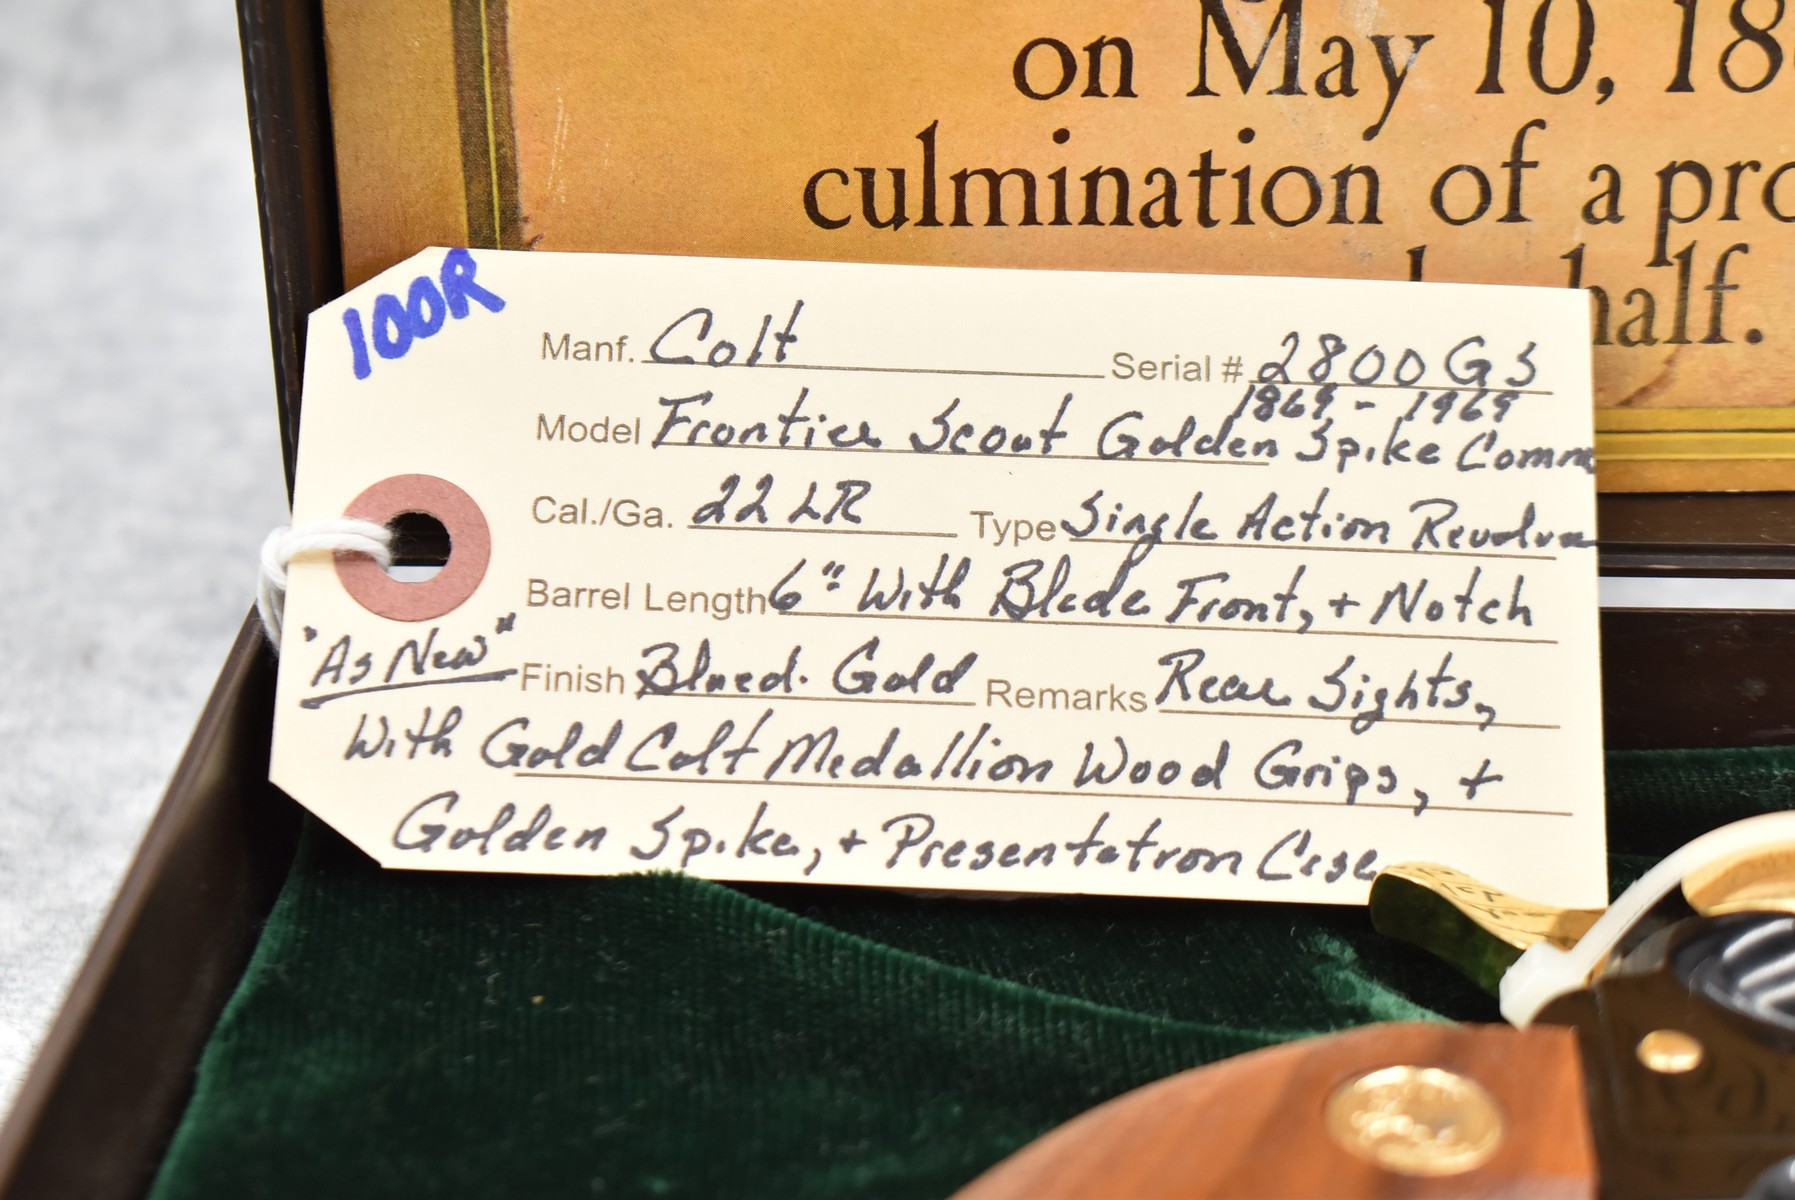 on May 10, 18
culmination of a pro
half.
100R
Manf. Colt Serial # 2800 GS
1869 - 1969
Model Frontier Scout Golden Spike Comm
Cal./Ga. 22 LR Type Single Action Revolver
Barrel Length 6" With Blade Front, + Notch
"As New" Finish Blued. Gold Remarks Rear Sights,
With Gold Colt Medallion Wood Grips, +
Golden Spike, + Presentation Case